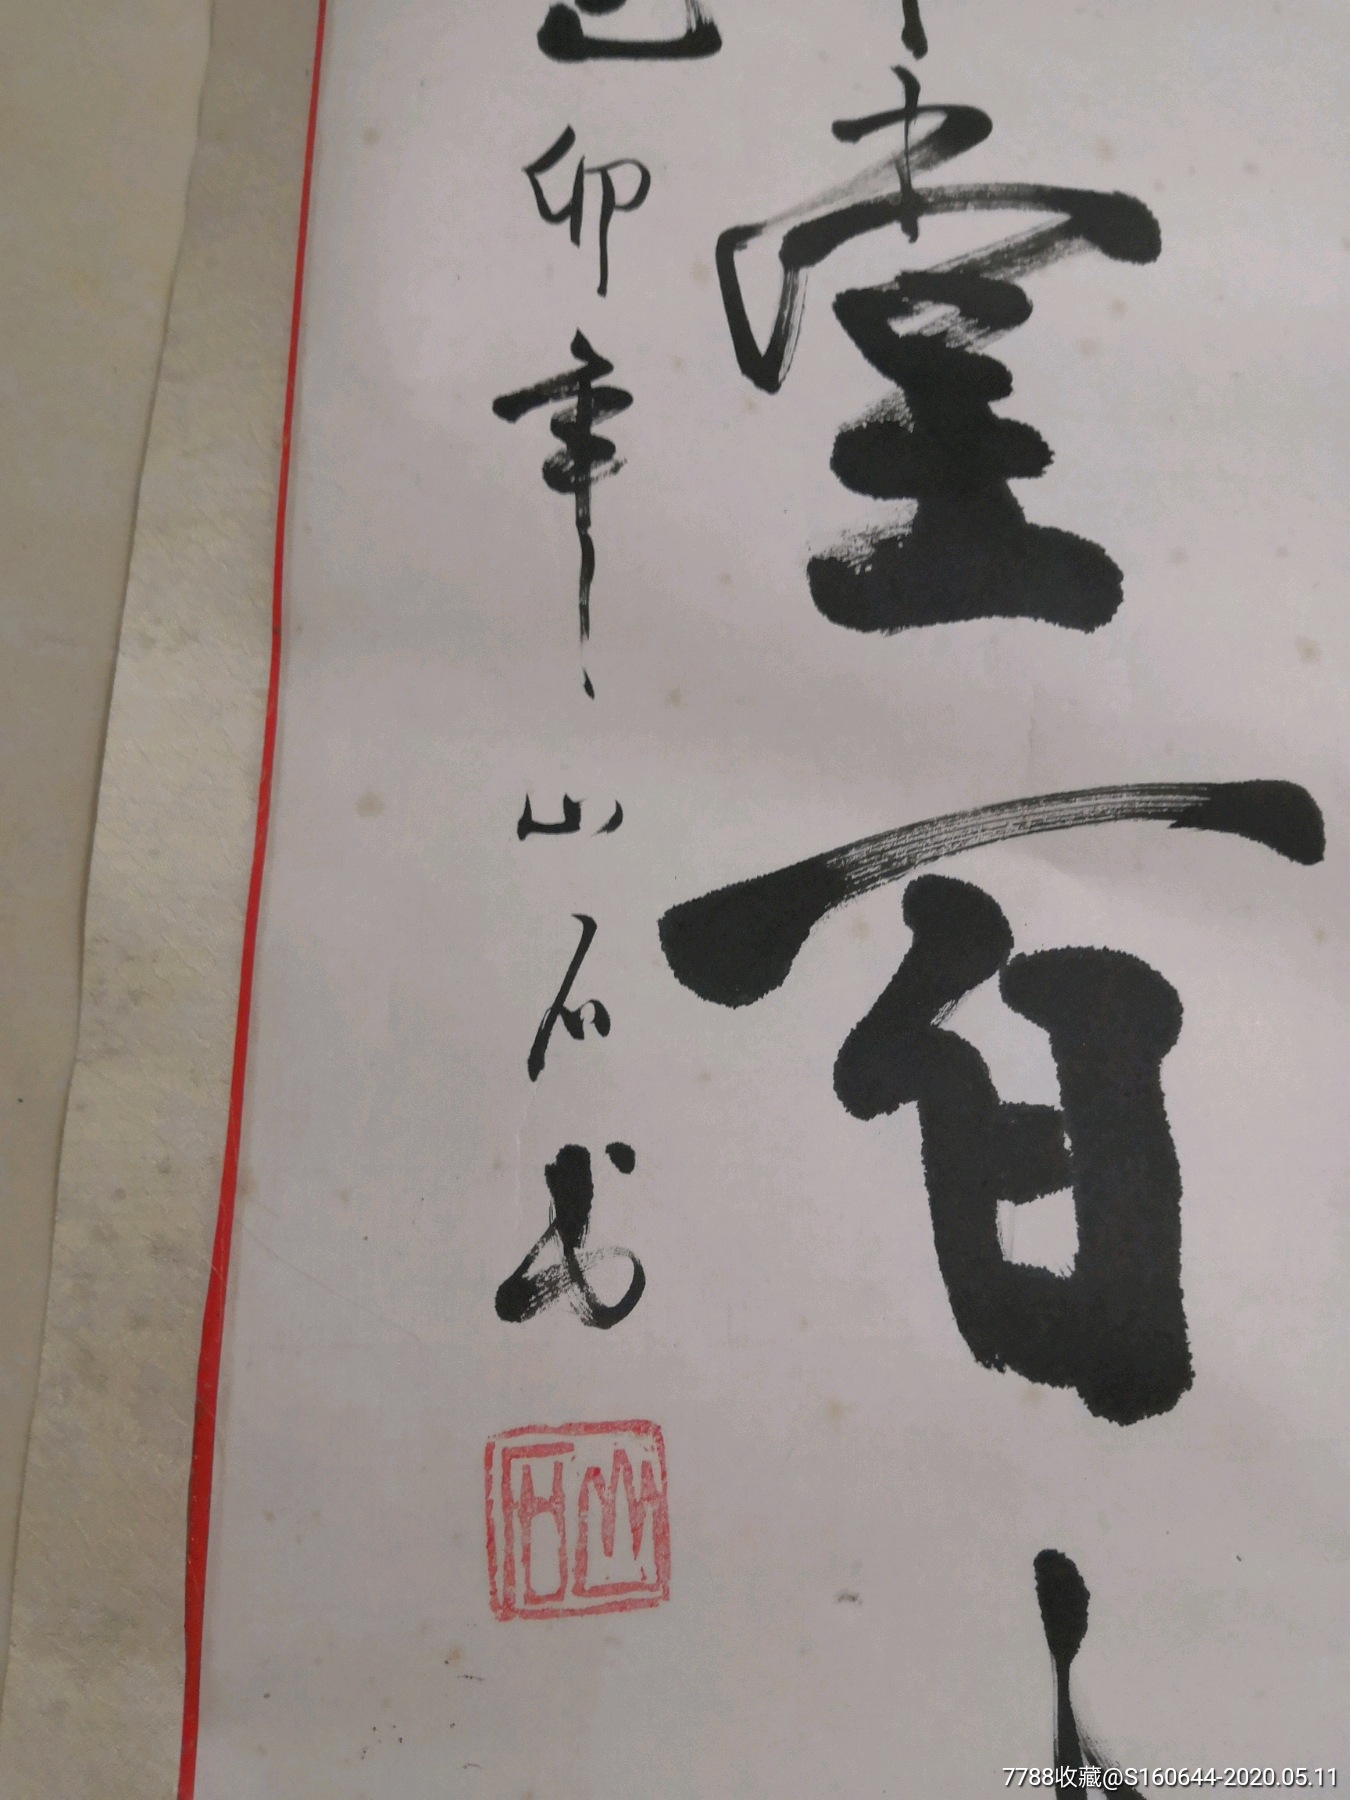 堂百
己卯年山石书
山石
7788收藏@S160644-2020.05.11